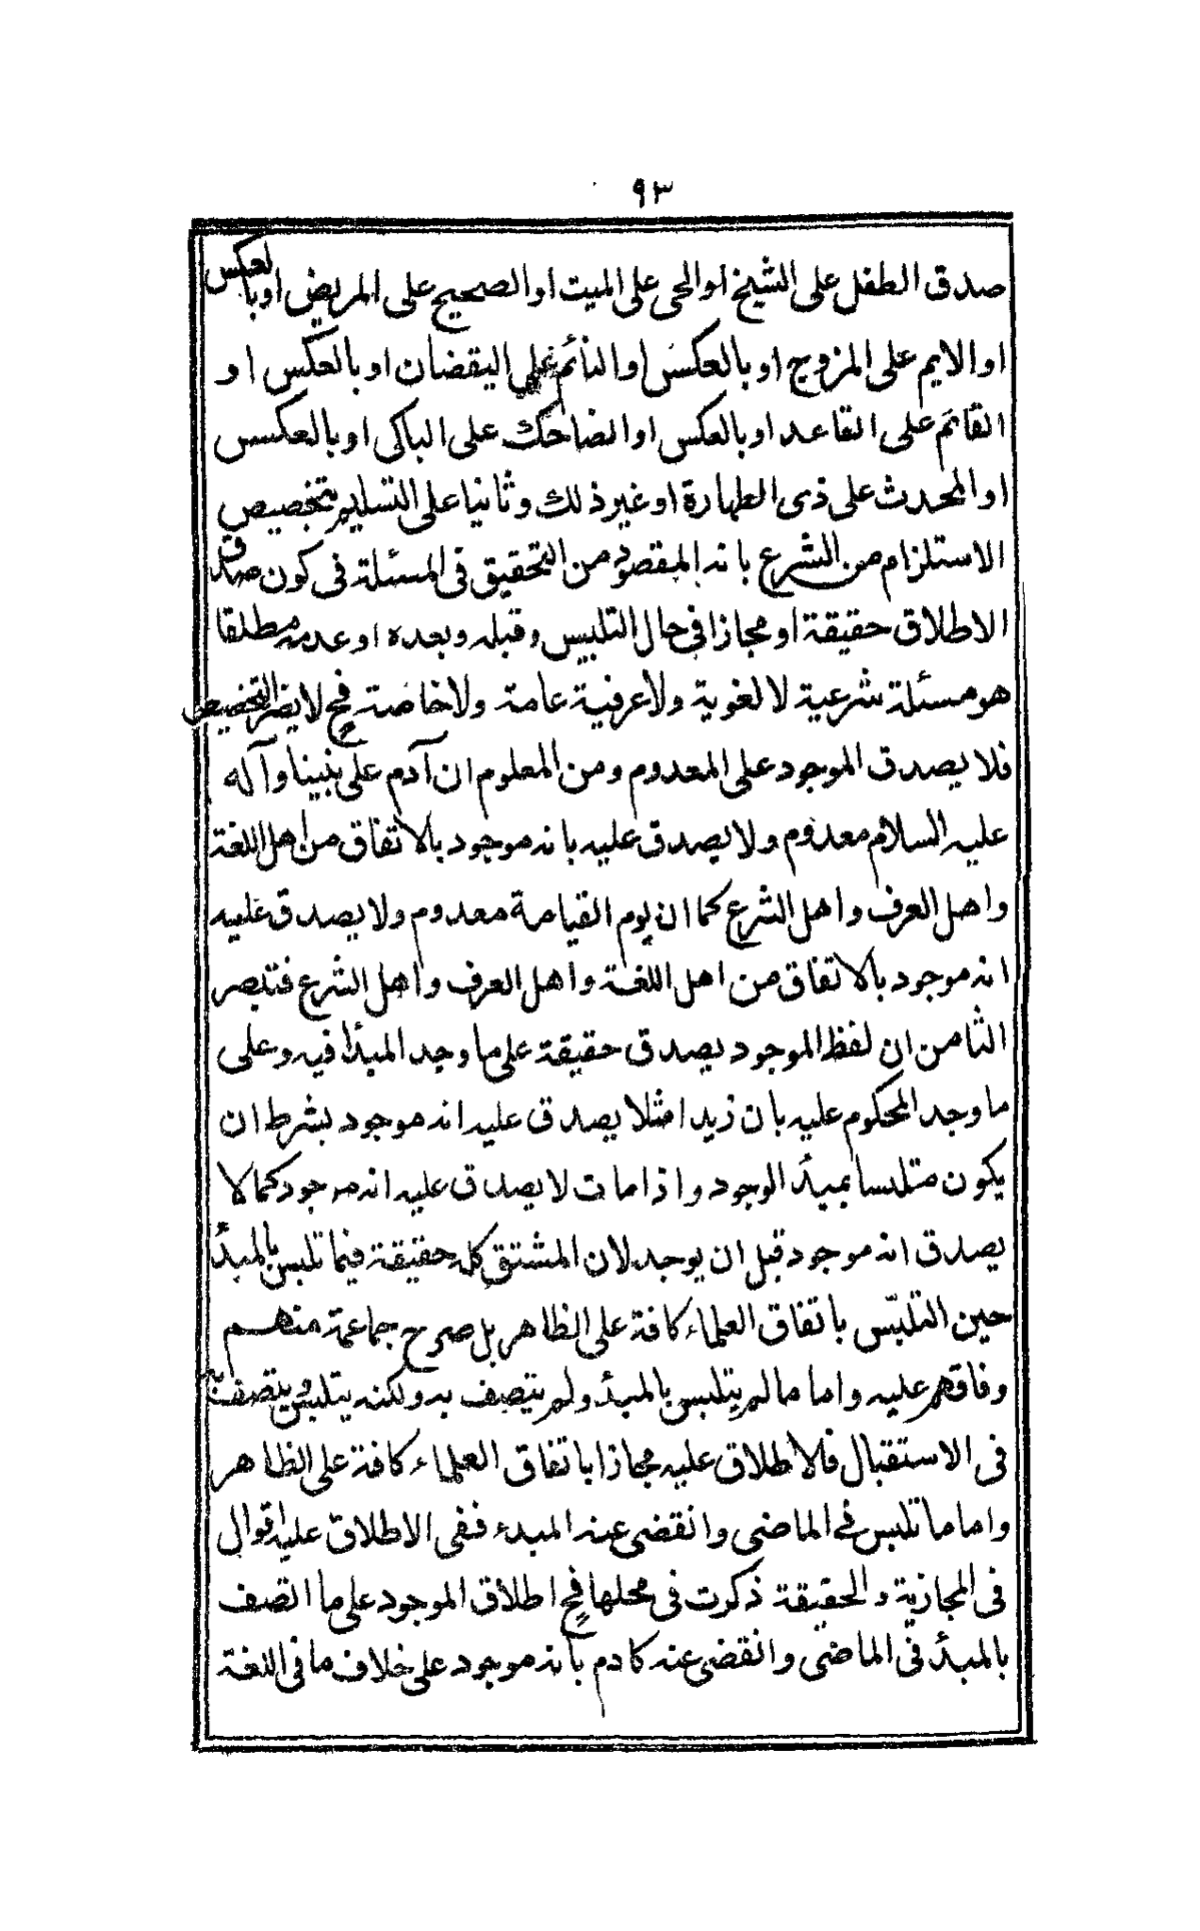 ٩٣
صدق الطفل على الشيخ او الحى على الميت او الصحيح على المريض او بالعكس
او الايم على المزوج او بالعكس او النائم على اليقضان او بالعكس او
القائم على القاعد او بالعكس او الضاحك على الباكى او بالعكس
او المحدث على ذى الطهارة او غير ذلك وثانيا على التسليم بتخصيص
الاستلزام من الشرع بانه المقصود من التحقيق فى المسئلة فى كون صدق
الاطلاق حقيقة او مجازا فى حال التلبس وقبله وبعده او عدمه مطلقا
هو مسئلة شرعية لا لغوية ولا عرفية عامة ولا خاصة فح لا يضر التخصيص
فلا يصدق الموجود على المعدوم ومن المعلوم ان آدم على نبينا وآله
عليه السلام معدوم ولا يصدق عليه بانه موجود بالاتفاق من اهل اللغة
واهل العرف واهل الشرع كما ان يوم القيامة معدوم ولا يصدق عليه
انه موجود بالاتفاق من اهل اللغة واهل العرف واهل الشرع فتبصر
الثامن ان لفظ الموجود يصدق حقيقة على ما وجد المبدأ فيه وعلى
ما وجد المحكوم عليه بان زيدا مثلا يصدق عليه انه موجود بشرط ان
يكون متلبسا بمبدأ الوجود واذا مات لا يصدق عليه انه موجود كما لا
يصدق انه موجود قبل ان يوجد لان المشتق كله حقيقة فيما تلبس بالمبدأ
حين التلبّس باتفاق العلماء كافة على الظاهر بل صرح جماعة منهم
وفاقهم عليه واما ما لم يتلبس بالمبدأ ولم يتصف به ولكنه يتلبس ويتصف به
فى الاستقبال فالاطلاق عليه مجازا باتفاق العلماء كافة على الظاهر
واما ما تلبس فى الماضى وانقضى عنه المبدء ففى الاطلاق عليه اقوال
فى المجازية والحقيقة ذكرت فى محلها فح اطلاق الموجود على ما اتصف
بالمبدأ فى الماضى وانقضى عنه كادم بانه موجود على خلاف ما فى اللغة